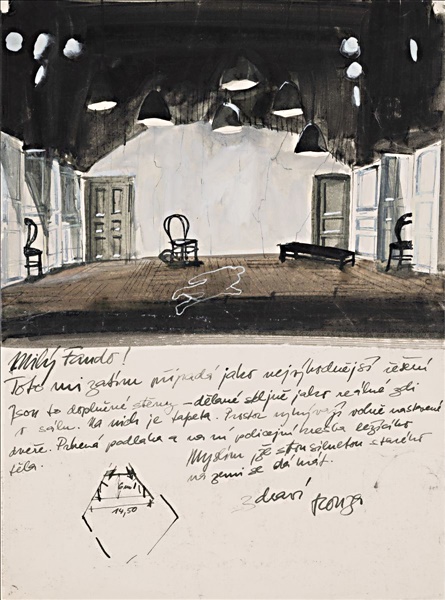 Milý Fando!
Toto mi zatím připadá jako nejvýhodnější řešení
Jsou to doplněné stěny - dělané stejně jako reálné zdi
v sálu. Na nich je tapeta. Prostor vodně nastavené
dveře. Prkenná podlaha a na ní policejní kresba ležícího
těla.
Myslím, že s tou siluetou
na zemi se dá hrát.
6 m
14,50
Zdraví